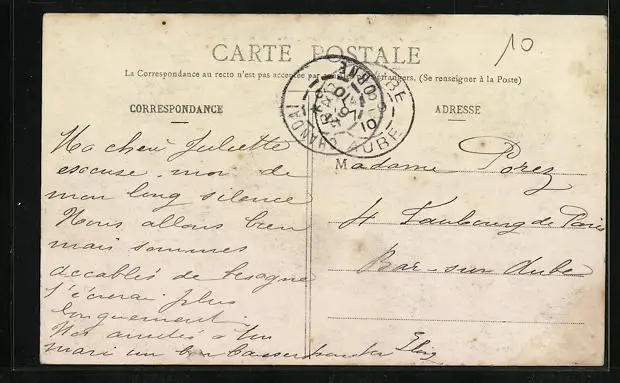 10
CARTE POSTALE
La Correspondance au recto n'est pas acceptée par étrangers, (Se renseigner à la Poste)
CORRESPONDANCE
Ma chère Juliette
excuse-moi de
mon long silence
Nous allons bien
mais sommes
accablés de besogne
J'écrirai plus
longuement.
Nos amitiés à ton
mari un bon baiser
ADRESSE
Madame Porez
4 Faubourg de Paris
Bar-sur Aube
AUBE